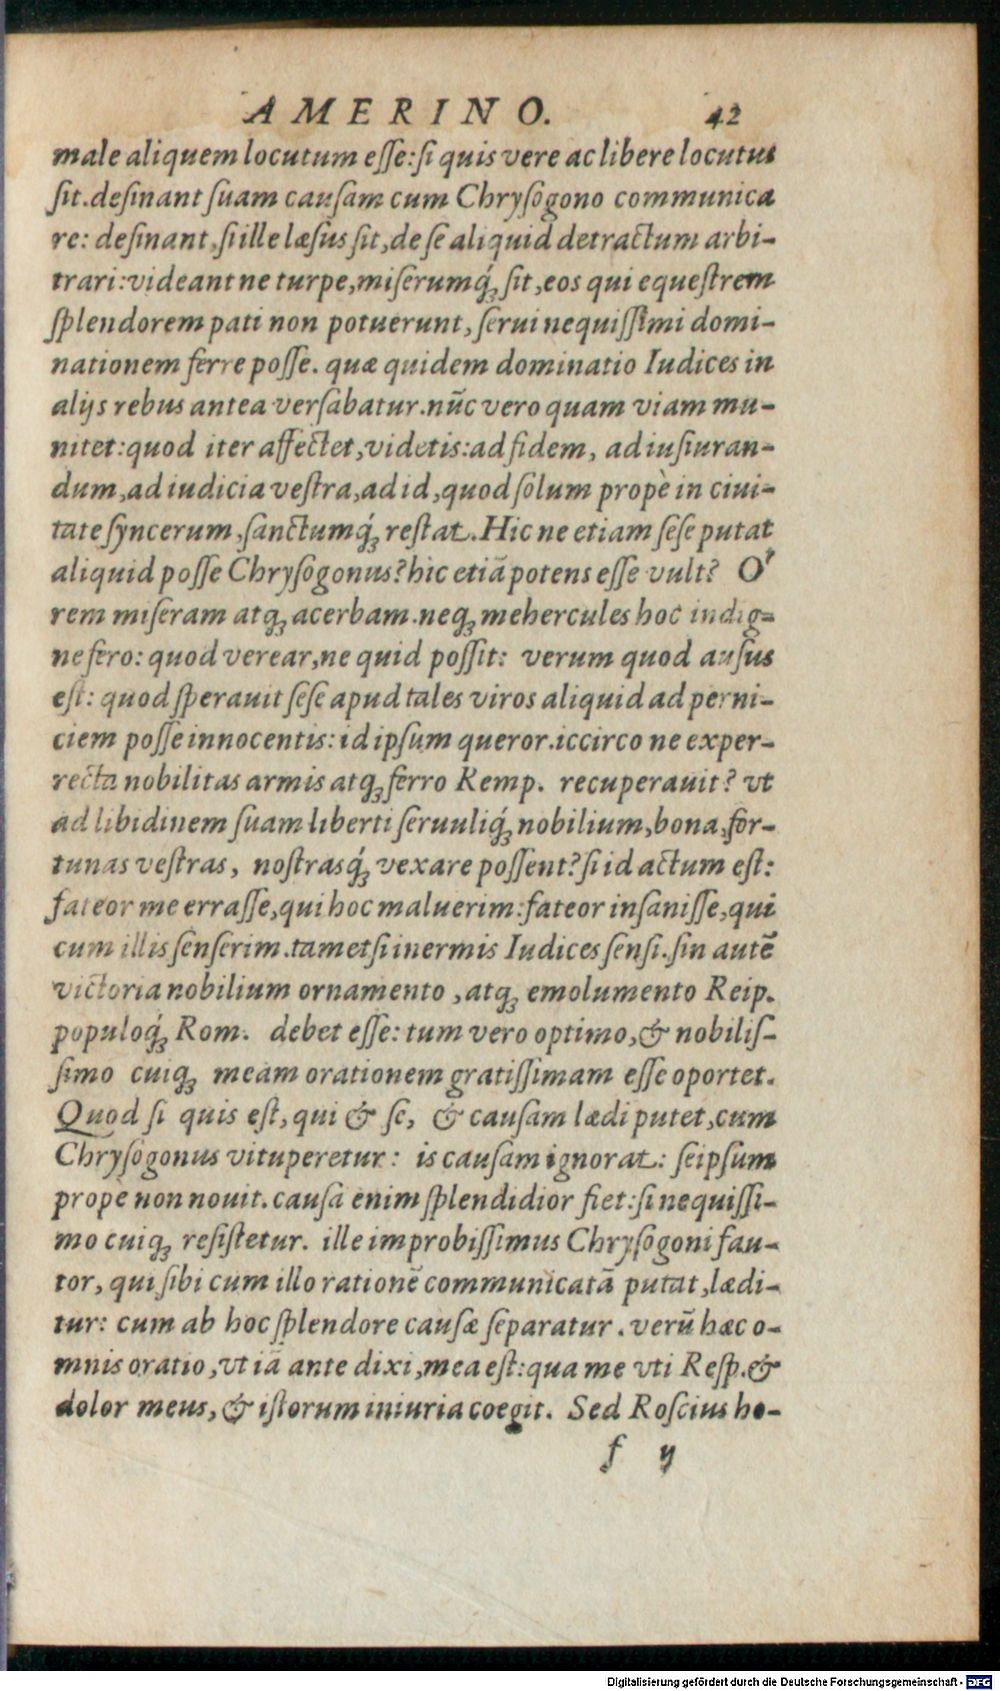 AMERINO. 42
male aliquem locutum eſſe: ſi quis vere ac libere locutus
ſit. deſinant ſuam cauſam cum Chryſogono communica
re: deſinant, ſi ille læsus ſit, de ſe aliquid detractum arbi-
trari: videant ne turpe, miſerumq́ꝫ ſit, eos qui equeſtrem
ſplendorem pati non potuerunt, ſerui nequiſſimi domi-
nationem ferre poſſe. quæ quidem dominatio Iudices in
alijs rebus antea verſabatur. nūc vero quam viam mu-
nitet: quod iter affectet, videtis: ad fidem, ad iuſiuran-
dum, ad iudicia veſtra, ad id, quod ſolum propè in ciui-
tate ſyncerum, ſanctumq́ꝫ reſtat. Hic ne etiam ſeſe putat
aliquid poſſe Chryſogonus? hic etiā potens eſſe vult? O'
rem miſeram atqꝫ acerbam. neqꝫ mehercules hoc indig-
ne fero: quod verear, ne quid poſſit: verum quod auſus
eſt: quod ſperauit ſeſe apud tales viros aliquid ad perni-
ciem poſſe innocentis: id ipſum queror. iccirco ne exper-
recta nobilitas armis atqꝫ ferro Remp. recuperauit? vt
ad libidinem ſuam liberti ſeruuliq́ꝫ nobilium, bona, for-
tunas veſtras, noſtrasq́ꝫ vexare poſſent? ſi id actum eſt:
fateor me erraſſe, qui hoc maluerim: fateor inſaniſſe, qui
cum illis ſenſerim. tametſi inermis Iudices ſenſi. ſin autē
victoria nobilium ornamento, atqꝫ emolumento Reip.
populoq́ꝫ Rom. debet eſſe: tum vero optimo, & nobiliſ-
ſimo cuiqꝫ meam orationem gratiſſimam eſſe oportet.
Quod ſi quis eſt, qui & ſe, & cauſam lædi putet, cum
Chryſogonus vituperetur: is cauſam ignorat: ſeipſum
propè non nouit. cauſa enim ſplendidior fiet: ſi nequiſſi-
mo cuiqꝫ reſiſtetur. ille improbiſſimus Chryſogoni fau-
tor, qui ſibi cum illo rationē communicatā putat, lædi-
tur: cum ab hoc ſplendore cauſæ ſeparatur. verū hæc o-
mnis oratio, vt iā ante dixi, mea eſt: qua me vti Reſp. &
dolor meus, & iſtorum iniuria coegit. Sed Roſcius ho-
f ij
Digitalisierung gefördert durch die Deutsche Forschungsgemeinschaft - DFG